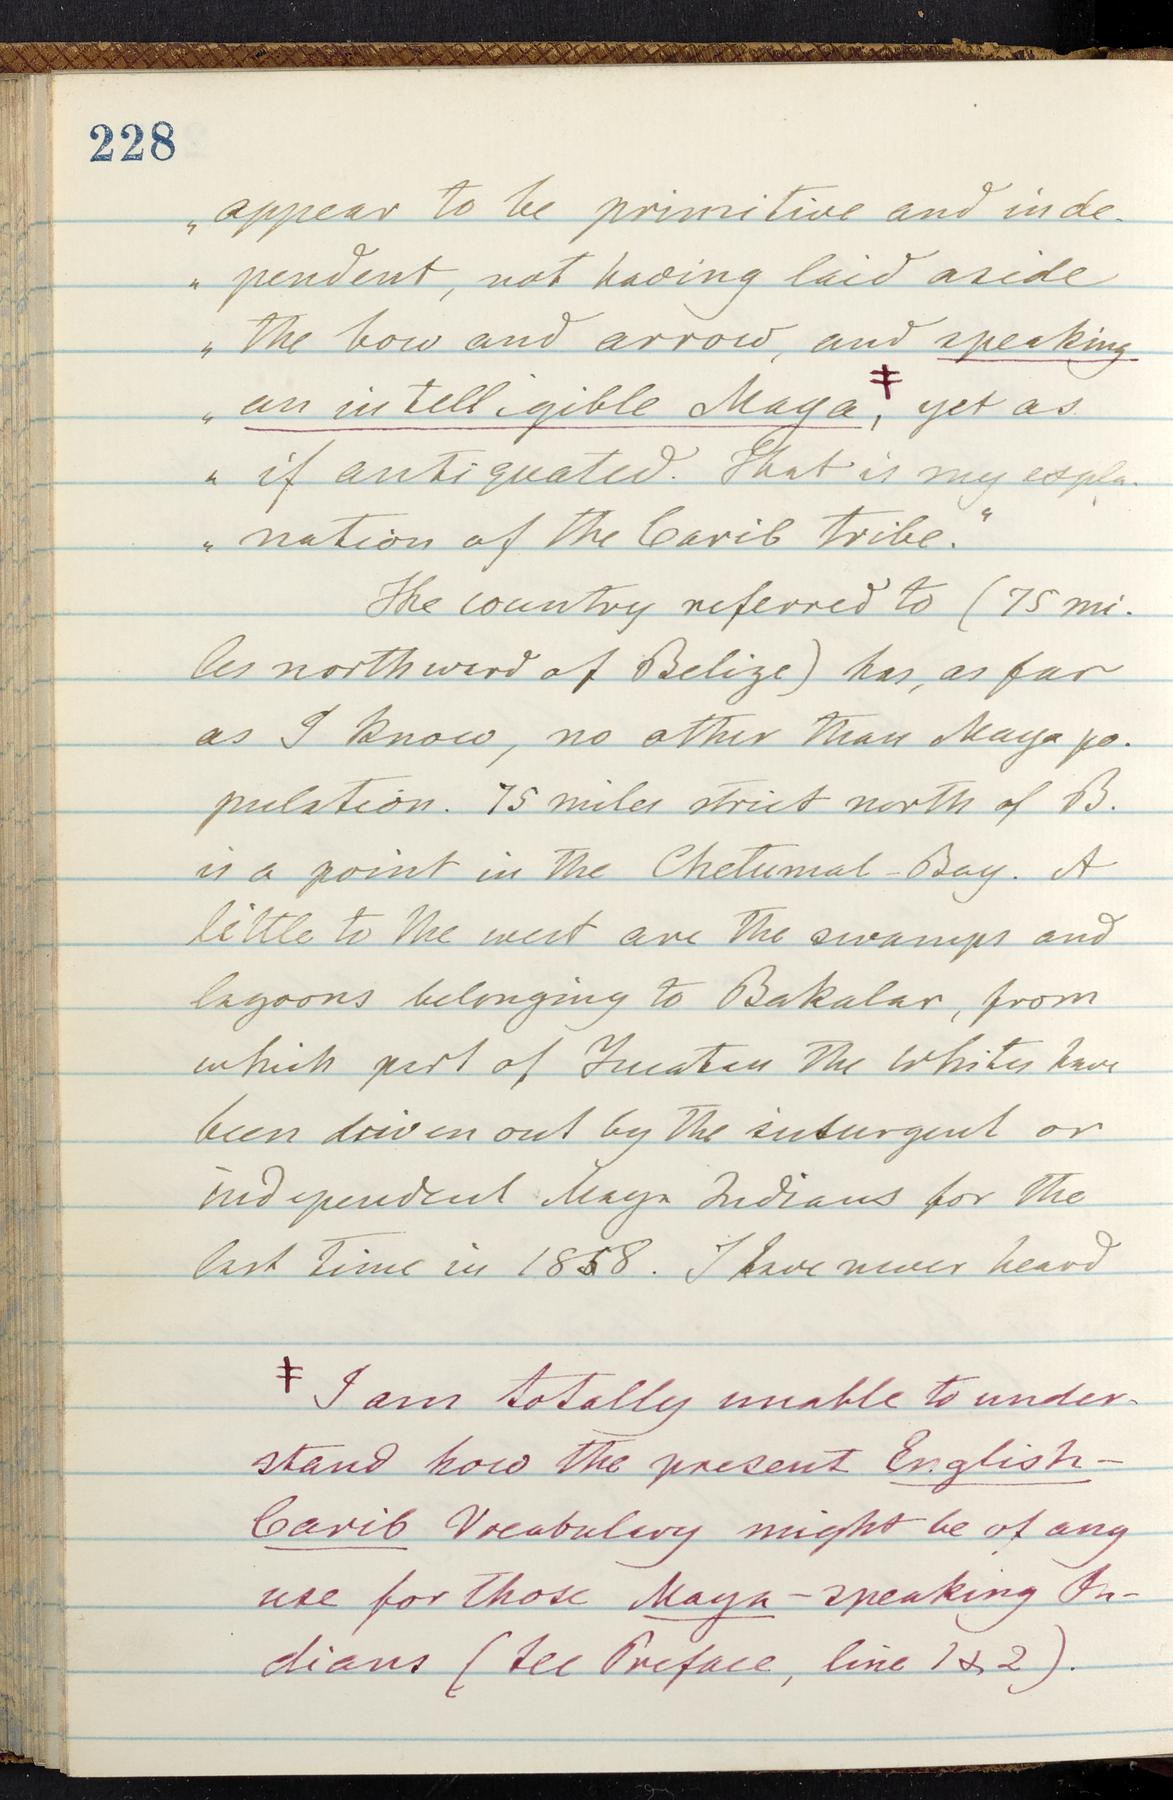 228
„ appear to be primitive and inde-
„ pendent, not having laid aside
„ the bow and arrow, and speaking
„ an intelligible Maya‡, yet as
„ if antiquated. That is my expla-
„ nation of the Carib tribe."
The country referred to (75 mi-
les northward of Belize) has, as far
as I know, no other than Maya po-
pulation. 75 miles strict north of B.
is a point in the Chetumal-Bay. A
little to the west are the swamps and
lagoons belonging to Bakalar, from
which part of Yucatan the Whites have
been driven out by the insurgent or
independent Maya Indians for the
last time in 1858. I have never heard
‡ I am totally unable to under-
stand how the present English-
Carib Vocabulary might be of any
use for those Maya-speaking In-
dians (see Preface, line 1 & 2).